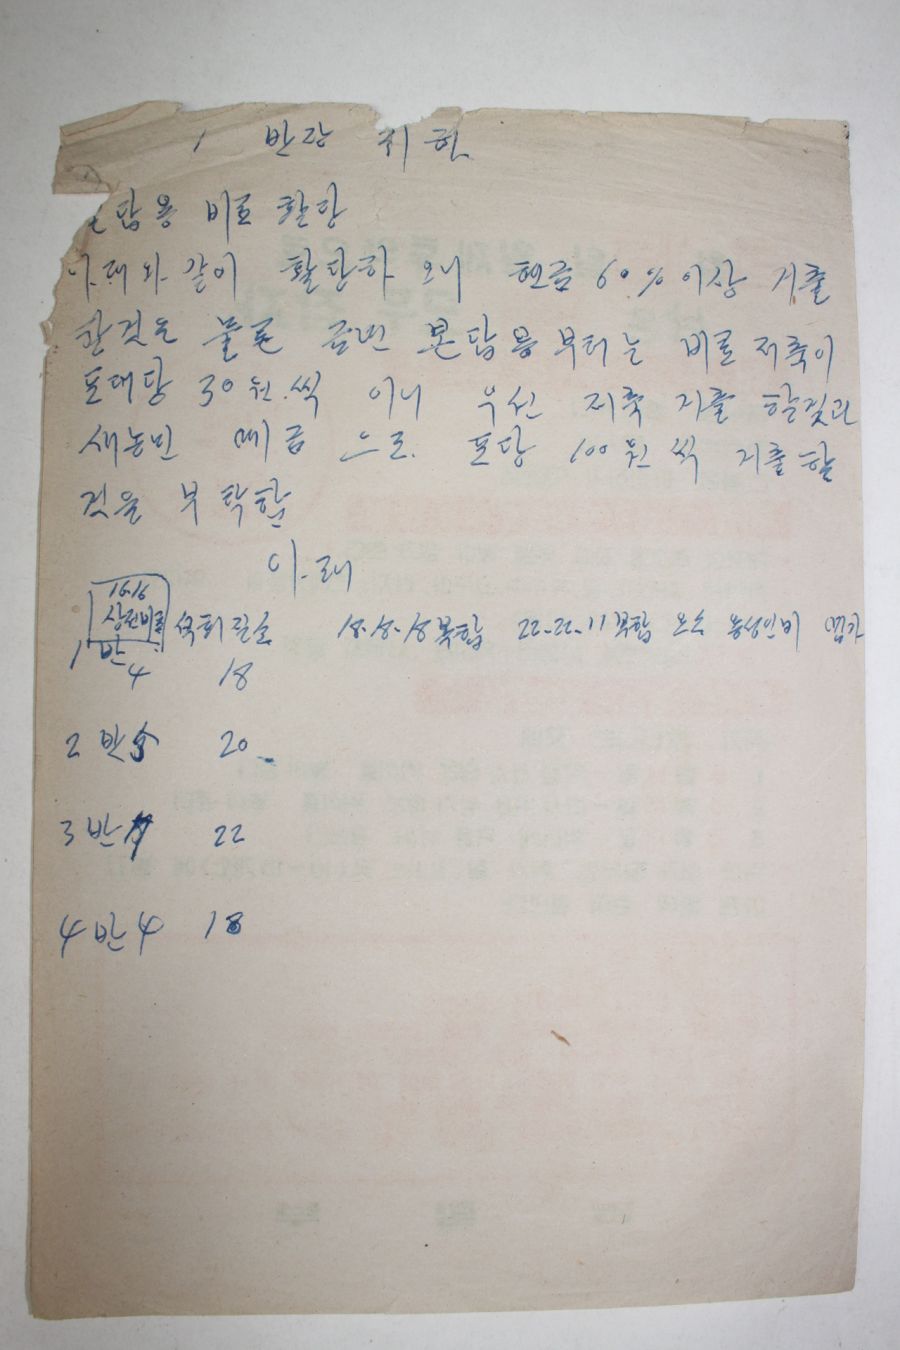 1 반장 귀하
답용 비료 할당
아래와 같이 할당하오니 현금 60% 이상 거출
한것은 물론 금번 본답용부터는 비료저축이
포대당 30원.씩 이니 우선 저축 거출 할것과
새농민 대금 으로. 포당 100원 씩 거출할
것을 부탁함
아.래
16-16
상전비료 석회질소 18-18-18복합 22-22-11복합 요소
1 반 4 18
2 반 5 20
3 반 22
4 반 4 18